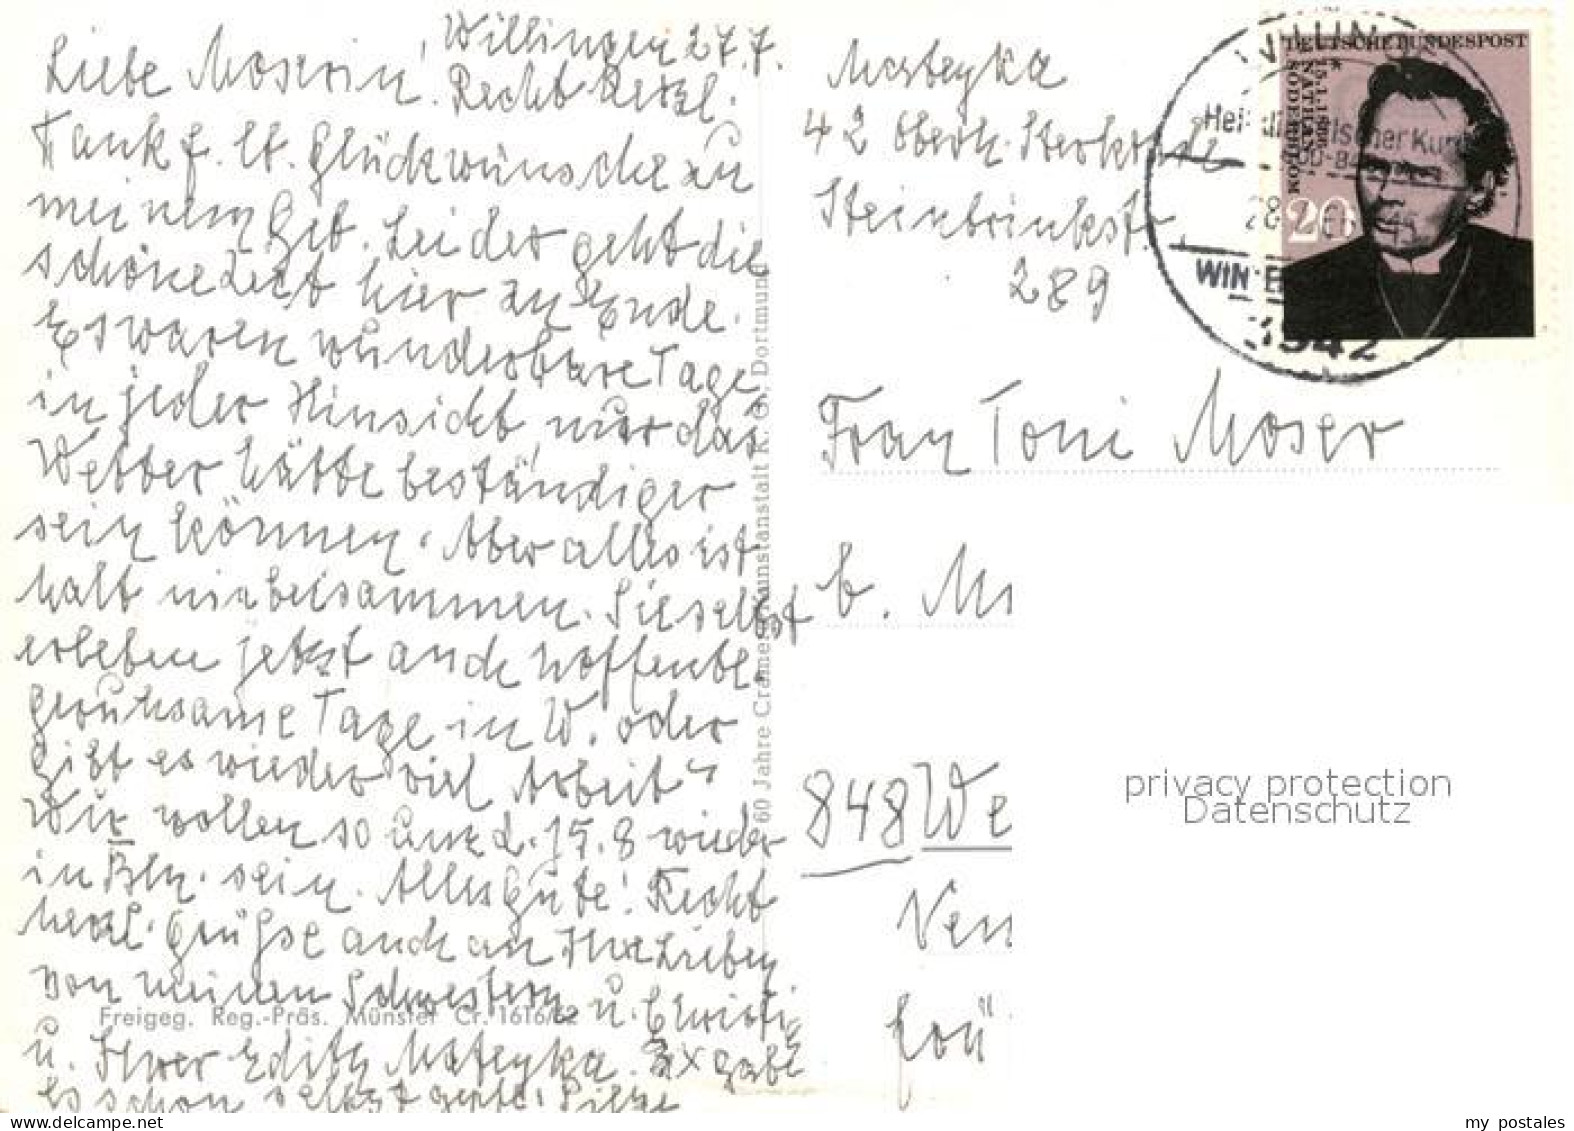 Willingen 27.7.
Liebe Moserin! Recht herzl.
Dank f. lb. Glückwünsche zu
meinem Geb. Leider geht die
schöne Zeit hier zu Ende.
Es waren wunderbare Tage
in jeder Hinsicht, nur das
Wetter hätte beständiger
sein können. Aber alles ist
halt nie beisammen. Sie selbst
erleben jetzt auch hoffentl.
geruhsame Tage in W. oder
gibt es wieder viel Arbeit?
Wir wollen so um d. 15.8 wieder
in Bln. sein. Alles Gute! Recht
herzl. Grüße auch an Ihre Lieben
von meinen Schwestern u. Christi
u. Ihrer Edith Mateyka. gabe
es schon selbst Pilze
Freigeg. Reg.-Präs. Münster Cr. 1616/62
60 Jahre Cramers Kunstanstalt K. G., Dortmund
Mateyka
42 Oberh. Sterkrade
Steinbrinkstr.
289
DEUTSCHE BUNDESPOST
* 15.1.1866
NATHAN
SÖDERBLOM
20
3542
Frau Toni Moser
b. M
848 We
fou"
privacy protection
Datenschutz
www.delcampe.net
my postales